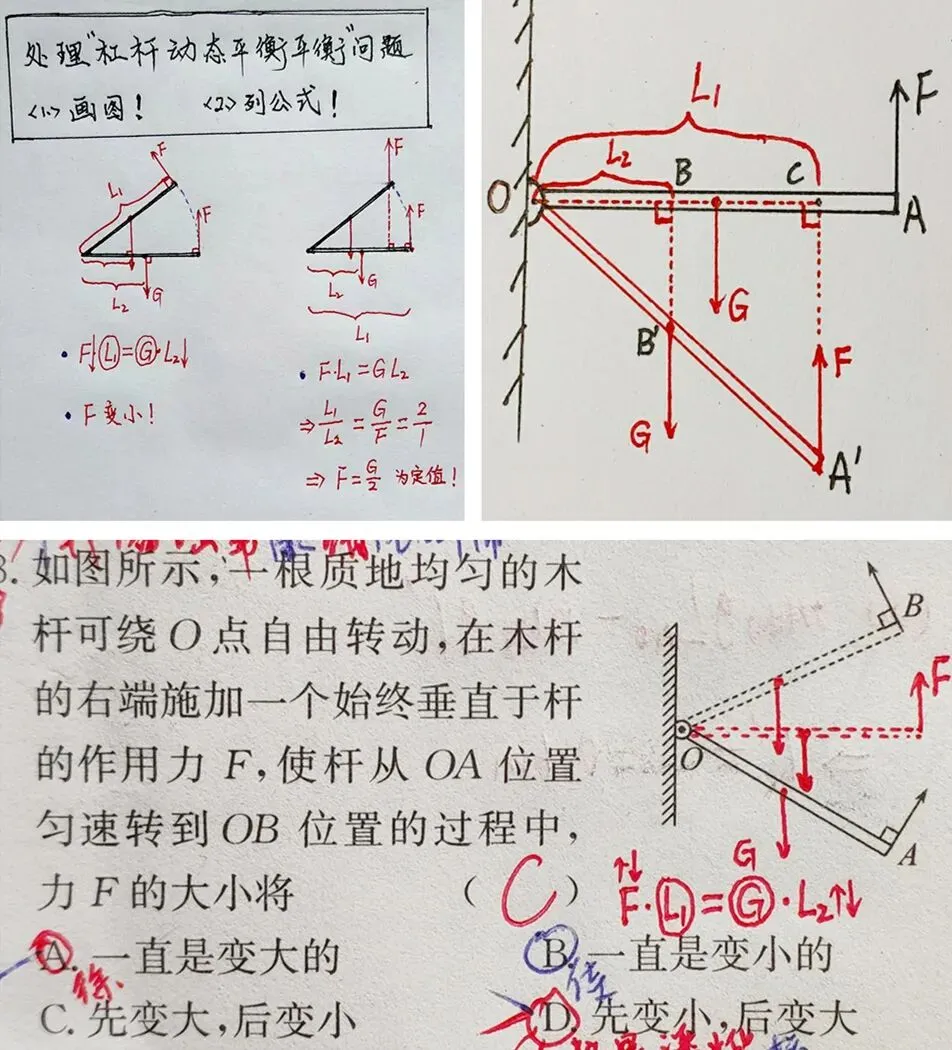 处理“杠杆动态平衡平衡”问题
<1>画图！ <2>列公式！
F
L₁
F
L₂
G
F↓·L₁=G·L₂↓
F变小！
F
F
L₂
G
L₁
F·L₁=GL₂
⇒L₁/L₂=G/F=2/1
⇒F=G/2 为定值！
L₁
F
L₂
B
C
O
A
G
B′
F
G
A′
3. 如图所示,一根质地均匀的木
杆可绕O点自由转动,在木杆
的右端施加一个始终垂直于杆
的作用力F,使杆从OA位置
匀速转到OB位置的过程中,
力F的大小将 (C)
A. 一直是变大的
B. 一直是变小的
C. 先变大,后变小
D. 先变小,后变大
B
F
O
A
G
F↑↓·L₁=G·L₂↑↓